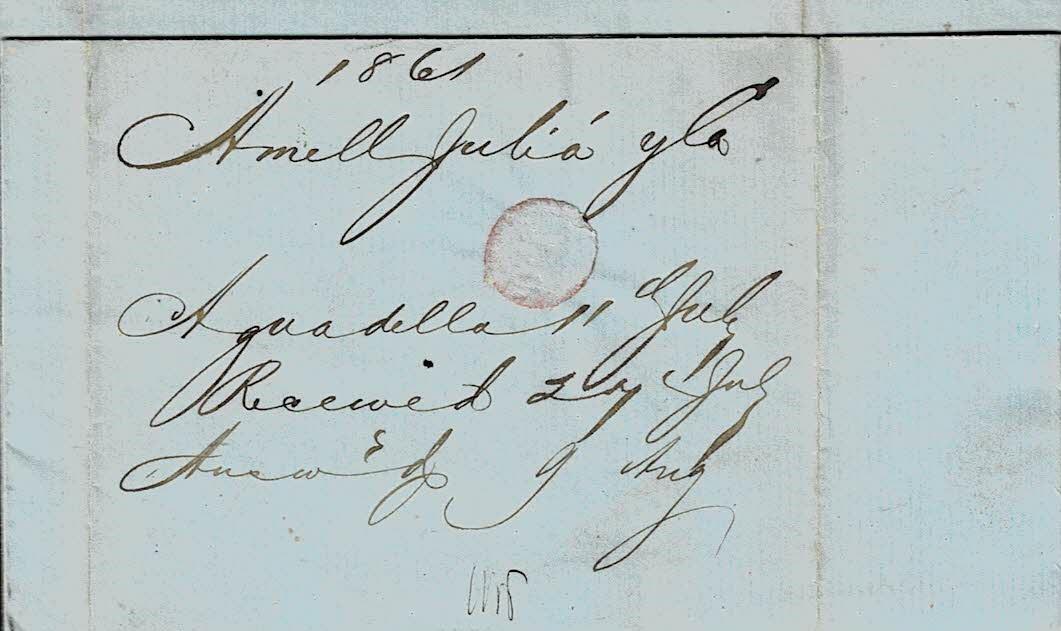 1861
Amell Juliá y Ca
Aguadella 11 July
Received 27 July
Answ'd 9 Aug